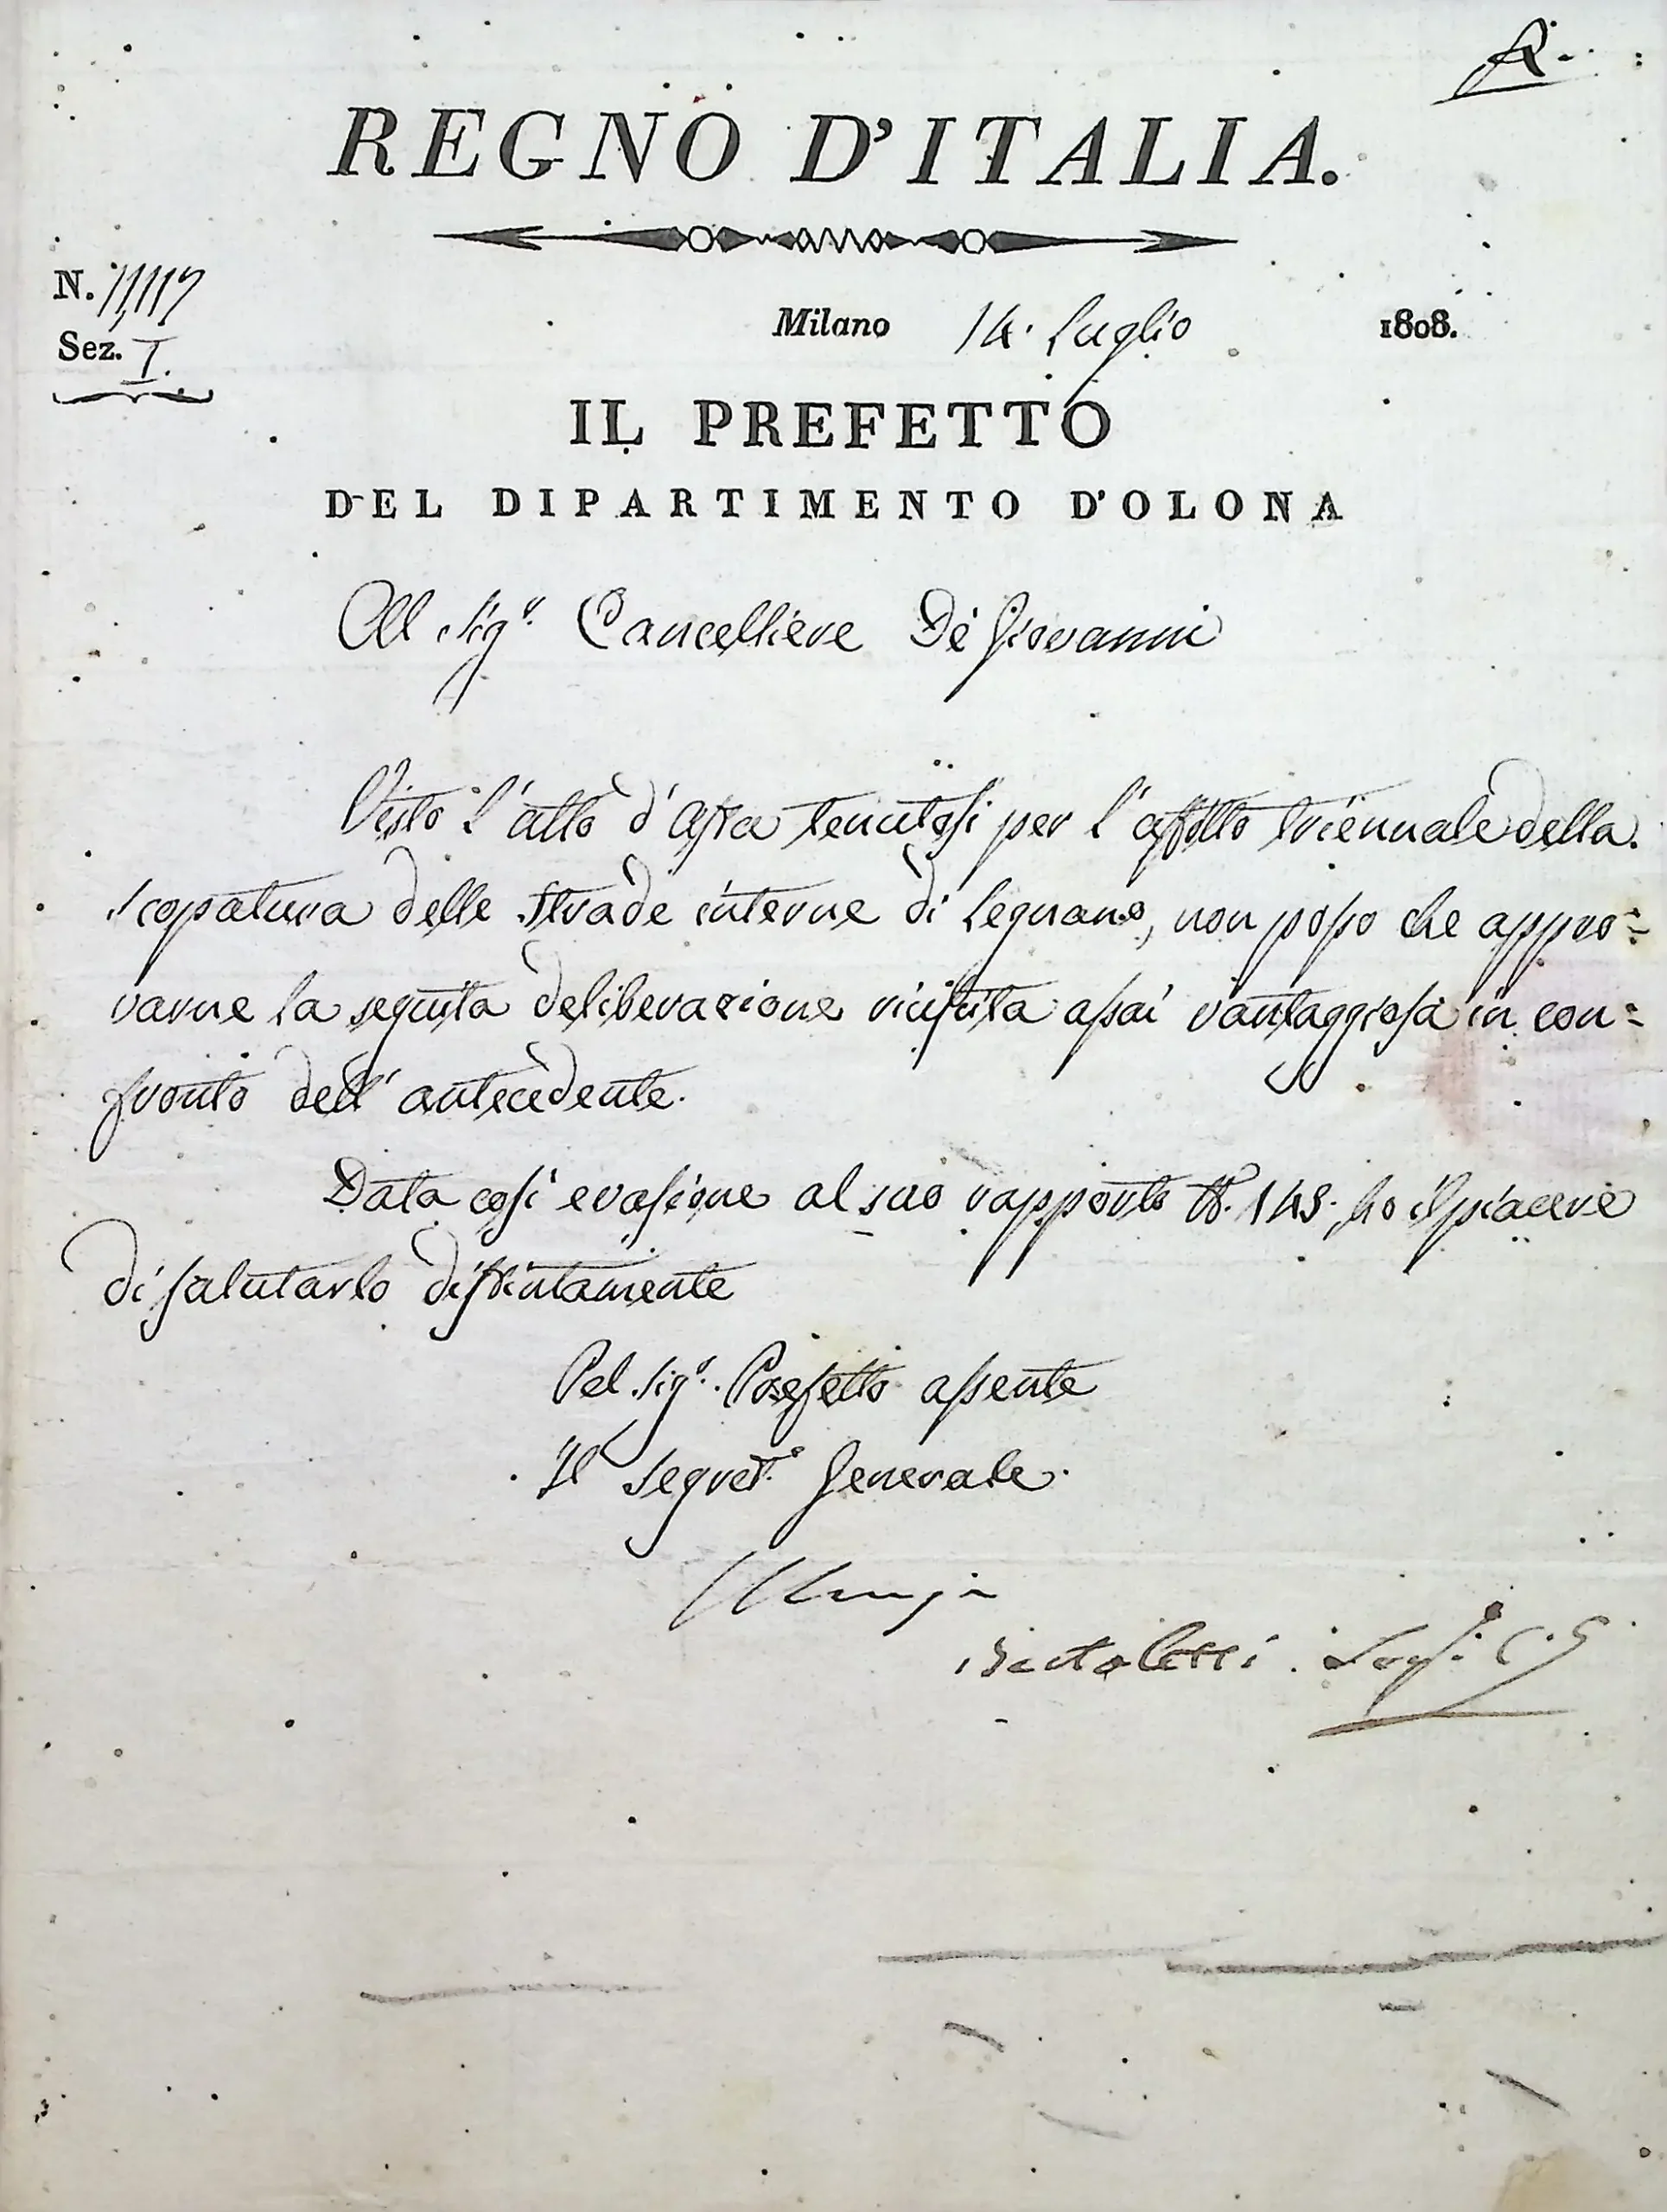 R.
REGNO D'ITALIA.
N. 11,117
Sez. I.
Milano 14. Luglio 1808.
IL PREFETTO
DEL DIPARTIMENTO D'OLONA
Al Sig.r Cancelliere De Giovanni
Visto l'atto d'Asta tenutosi per l'affitto triennale della
scopatura delle strade interne di Legnano, non posso che appro=
varne la seguita deliberazione riuscita assai vantaggiosa in con=
fronto dell'antecedente.
Data così evasione al suo rapporto N. 148. ho il piacere
di salutarlo distintamente
Pel Sig.r Prefetto assente
Il Segret.o Generale.
Bertoletti